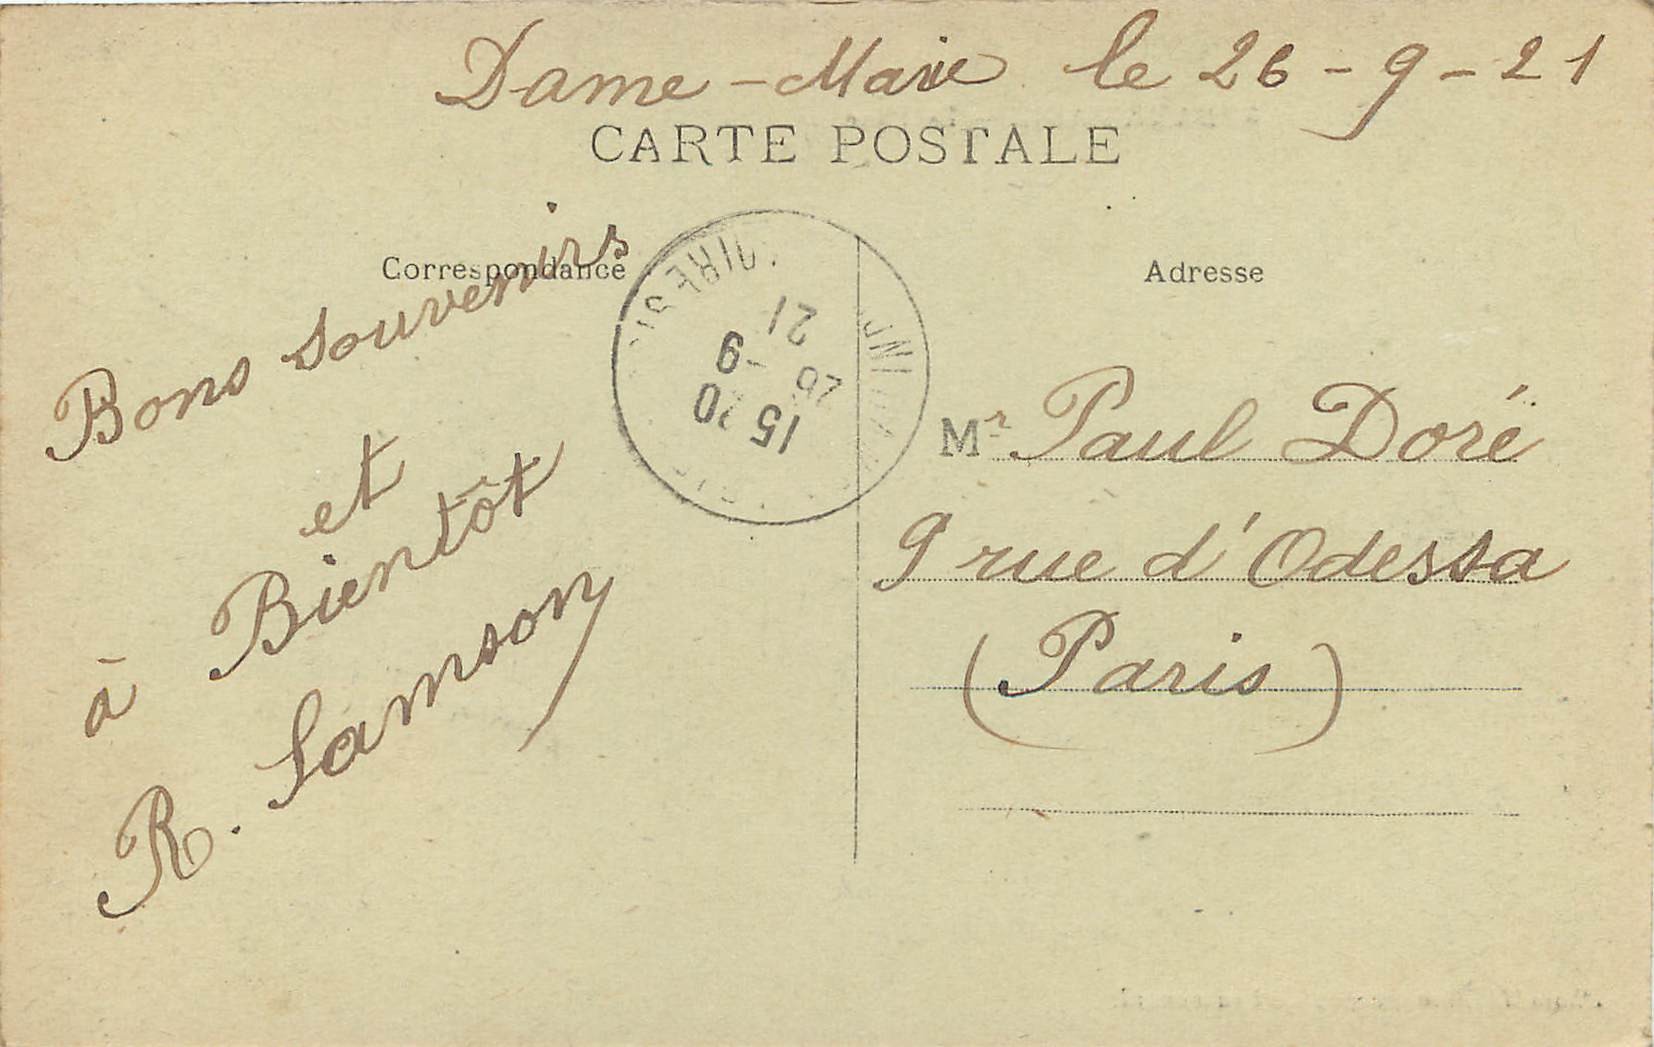 Dame-Marie le 26-9-21
CARTE POSTALE
Correspondance
Adresse
Bons souvenirs
et
à Bientôt
R. Samson
15 20
26 - 9
21
Mr Paul Doré
9 rue d'Odessa
(Paris)